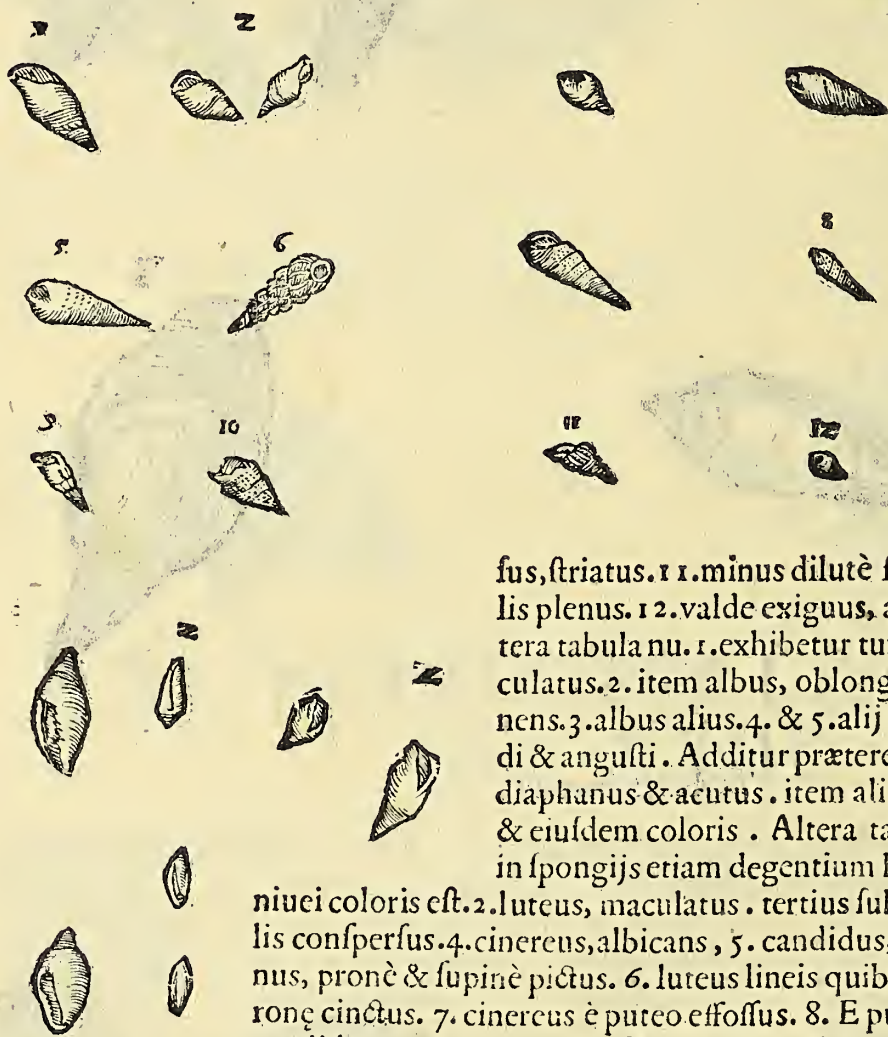 2
8
5.
6
9
10
11
12
ſus,ſtriatus.11.minus dilutè
lis plenus.12.valde exiguus,
tera tabula nu.1.exhibetur
culatus.2.item albus, oblong
nens.3.albus alius.4. & 5.alij
di & anguſti. Additur præter
diaphanus & acutus. item ali
& eiuſdem coloris . Altera
in ſpongijs etiam degentium
niuei coloris eſt.2.luteus, maculatus . tertius
lis conſperſus.4.cinereus,albicans , 5. candidus,
nus, pronè & ſupinè pictus. 6. luteus lineis quib
ronę cinctus. 7. cinereus è puteo effoſſus. 8. E
2
2